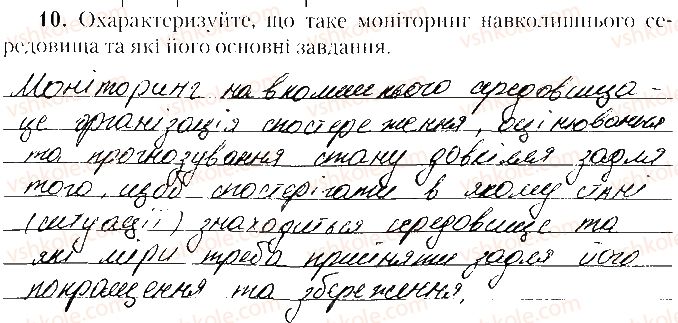 10. Охарактеризуйте, що таке моніторинг навколишнього се-
редовища та які його основні завдання.
Моніторинг навколишнього середовища -
це організація спостереження, оцінювання
та прогнозування стану довкілля задля
того, щоб спостерігати в якому стані
(ситуації) знаходиться середовище та
які міри треба прийняти задля його
покращення та збереження.